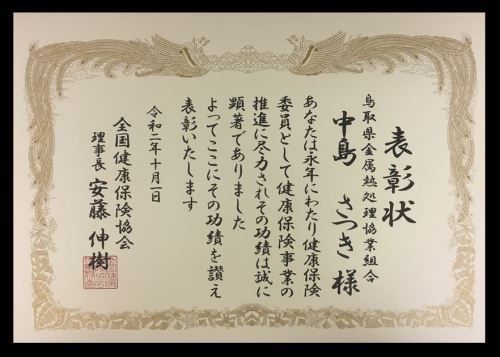 表彰状
鳥取県金属熱処理協業組合
中島 さつき 様
あなたは永年にわたり健康保険
委員として健康保険事業の
推進に尽力されその功績は誠に
顕著でありました
よってここにその功績を讃え
表彰いたします
令和二年十月一日
全国健康保険協会
理事長 安藤 伸樹